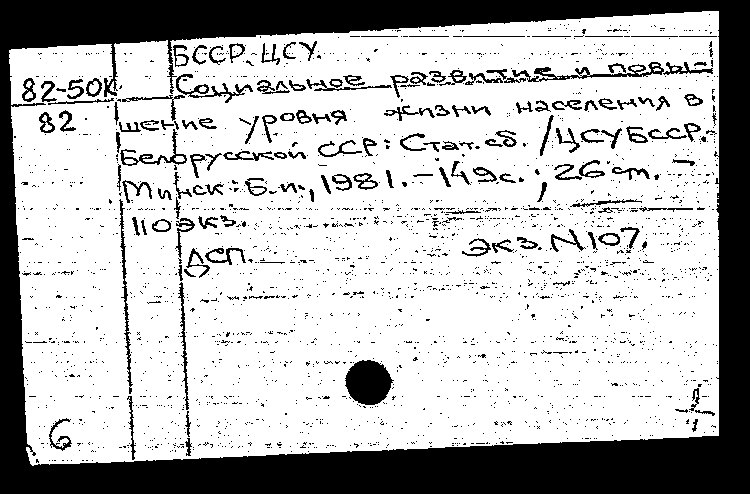 БССР. ЦСУ.
82-50К Социальное развитие и повы-
82 шение уровня жизни населения в
Белорусской ССР: Стат. сб. /ЦСУ БССР.-
Минск: Б.и., 1981.-149с.; 26 см. -
110 экз.
ДСП. экз. N 107.
6